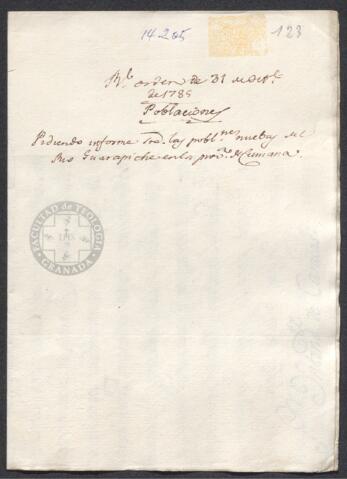 14.205
123
Rl orden de 31 de Octe
de 1785
Poblaciones
Pidiendo informe sre las pobles nuebas del
Rio Guarapiche en la prova de Cumana.
FACULTAD de TEOLOGIA
IHS
GRANADA